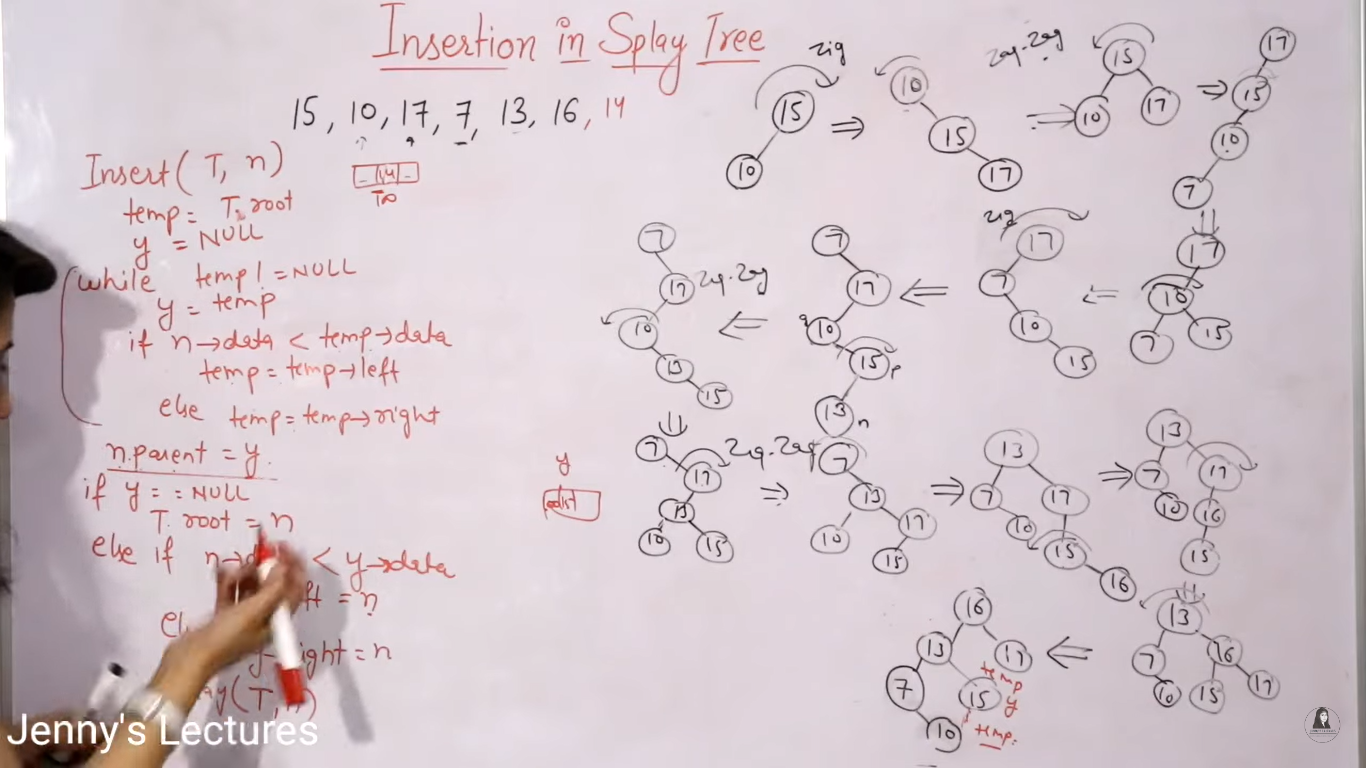 Insertion in Splay Tree
15, 10, 17, 7, 13, 16, 14
Insert(T, n)
temp = T.root
y = NULL
while temp! = NULL
y = temp
if n→data < temp→data
temp = temp→left
else temp = temp→right
n.parent = y
if y = = NULL
T. root = n
else if < y→data
= n
= n
14
y
zig
15
10
10
15
17
zag-zag
15
10
17
17
15
10
7
17
10
7
15
zig
17
7
10
15
7
17
10
15
13
p
n
zag-zag
7
17
10
13
15
7
17
13
10
15
zig-zag
7
13
10
17
15
13
7
17
10
15
16
13
7
17
10
16
15
13
7
16
10
15
17
16
13
17
7
15
10
temp
y
temp
Jenny's Lectures